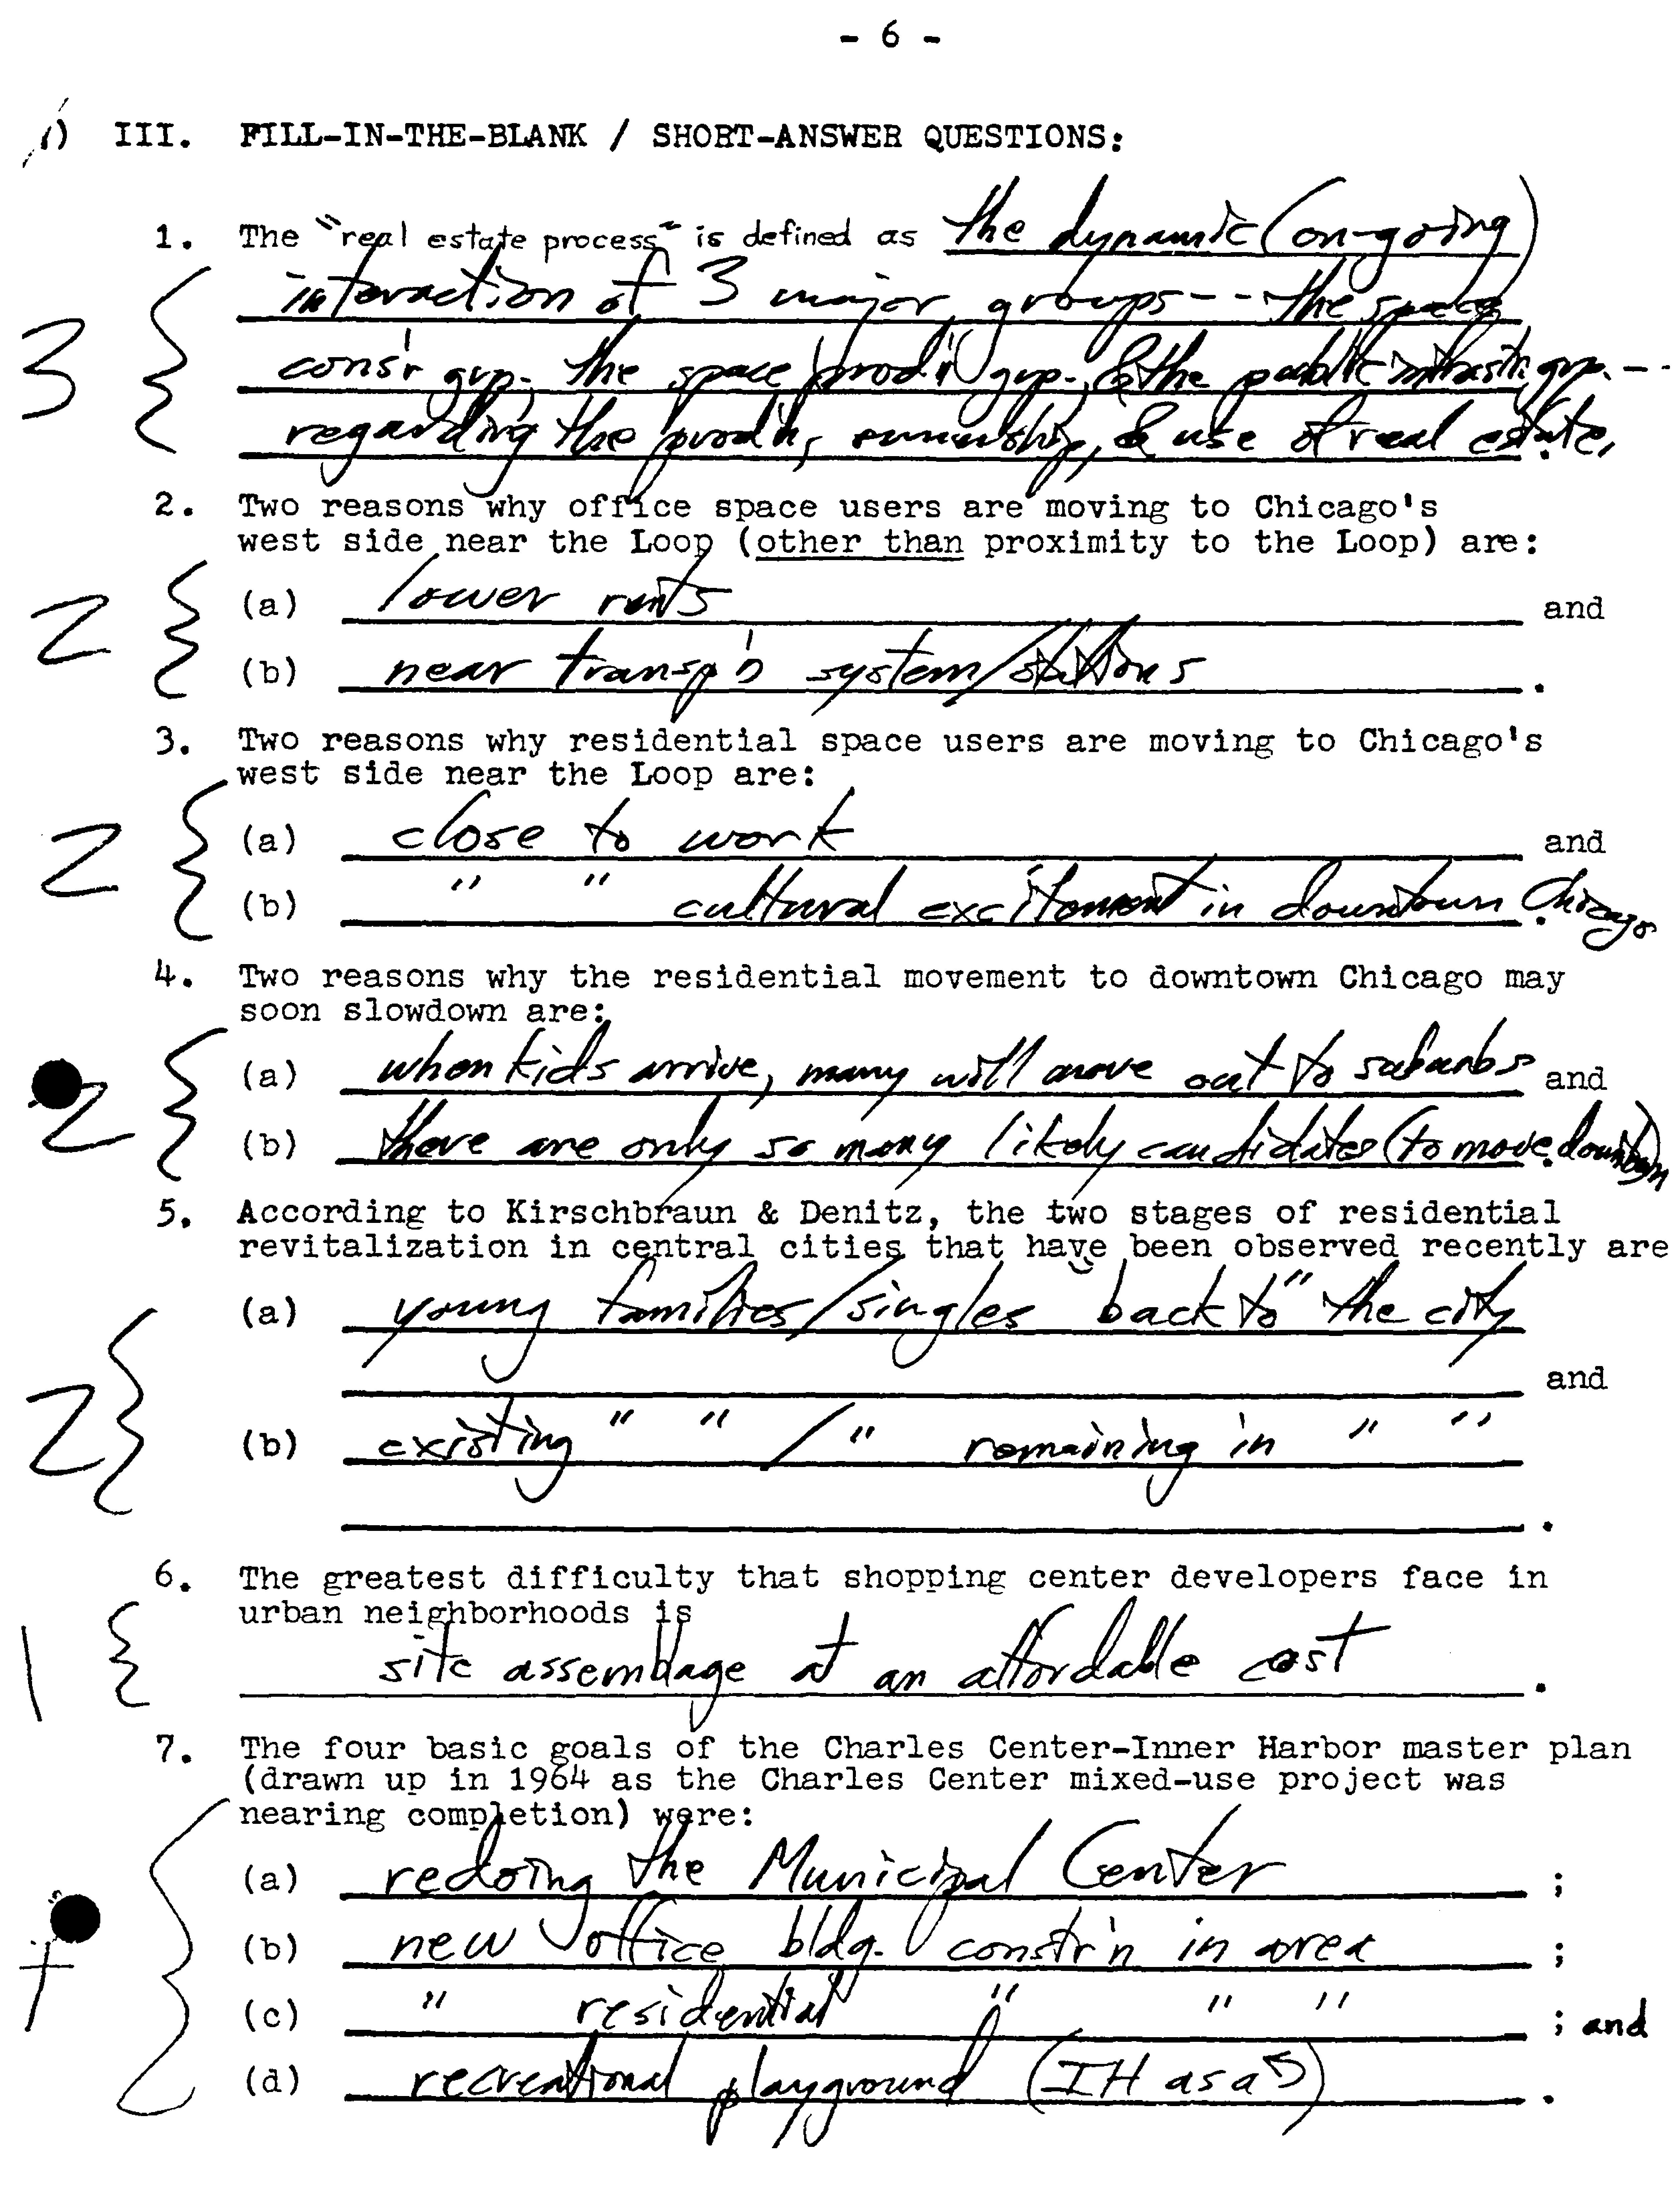 - 6 -
III. FILL-IN-THE-BLANK / SHORT-ANSWER QUESTIONS:
1. The "real estate process" is defined as the dynamic (on-going)
3 interaction of 3 major groups -- the space
cons'r grp., the space prod'r grp., & the public infrastr. grp. --
regarding the prod'n, ownership, & use of real estate.
2. Two reasons why office space users are moving to Chicago's
west side near the Loop (other than proximity to the Loop) are:
2 (a) lower rents and
(b) near transp'n system/stations .
3. Two reasons why residential space users are moving to Chicago's
west side near the Loop are:
2 (a) close to work and
(b) " " cultural excitement in downtown Chicago.
4. Two reasons why the residential movement to downtown Chicago may
soon slowdown are:
2 (a) when kids arrive, many will move out to suburbs and
(b) there are only so many likely candidates (to move downtown).
5. According to Kirschbraun & Denitz, the two stages of residential
revitalization in central cities that have been observed recently are
(a) young families/singles "back to" the city
and
2 (b) existing " " / " remaining in " "
.
6. The greatest difficulty that shopping center developers face in
urban neighborhoods is
1 site assemblage at an affordable cost .
7. The four basic goals of the Charles Center-Inner Harbor master plan
(drawn up in 1964 as the Charles Center mixed-use project was
nearing completion) were:
(a) redoing the Municipal Center ;
(b) new office bldg. constr'n in area ;
(c) " residential " " " ; and
(d) recreational playground (IH as a) .